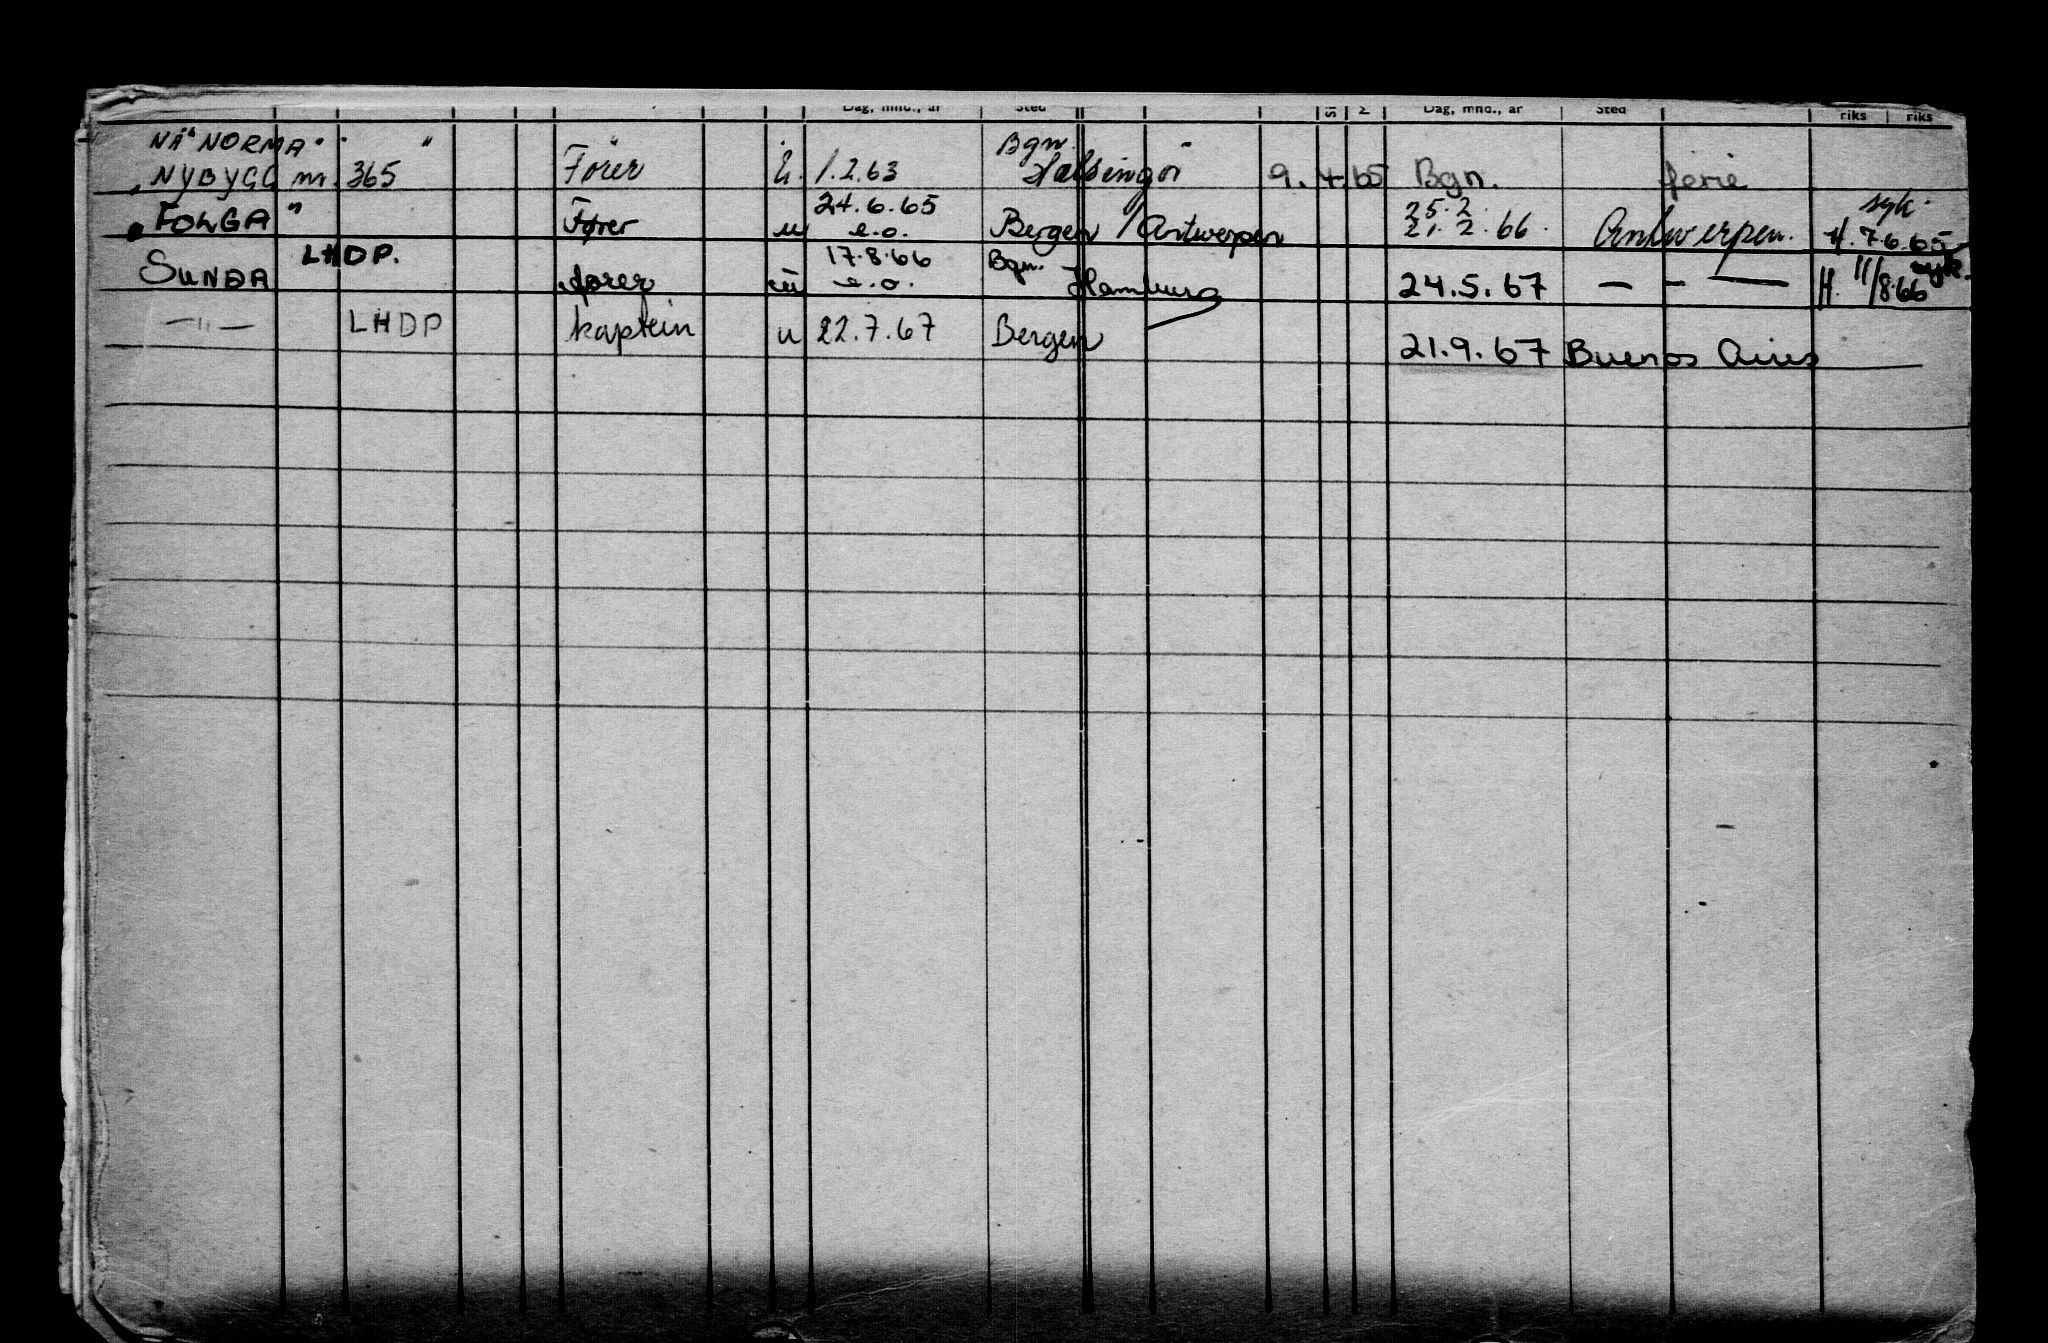 Dag, mnd., år Sted Dag, mnd., år Sted riks riks
NÅ "NORMA" " Bgn.
NYBYGG nr. 365 Fører u. 1.2.63 Halsingör 9.4.65 Bgn. ferie
24.6.65 25.2. syk.
FOLGA " Fører u e.o. Bergen / Antwerpen 21.2.66. Antwerpen. H. 7.6.65
LHDP. 17.8.66 Bgn. syk.
SUNDA fører ū e.o. Hamburg 24.5.67 — - — H. 11/8.66
—"— LHDP kaptein u 22.7.67 Bergen
21.9.67 Buenos Aires